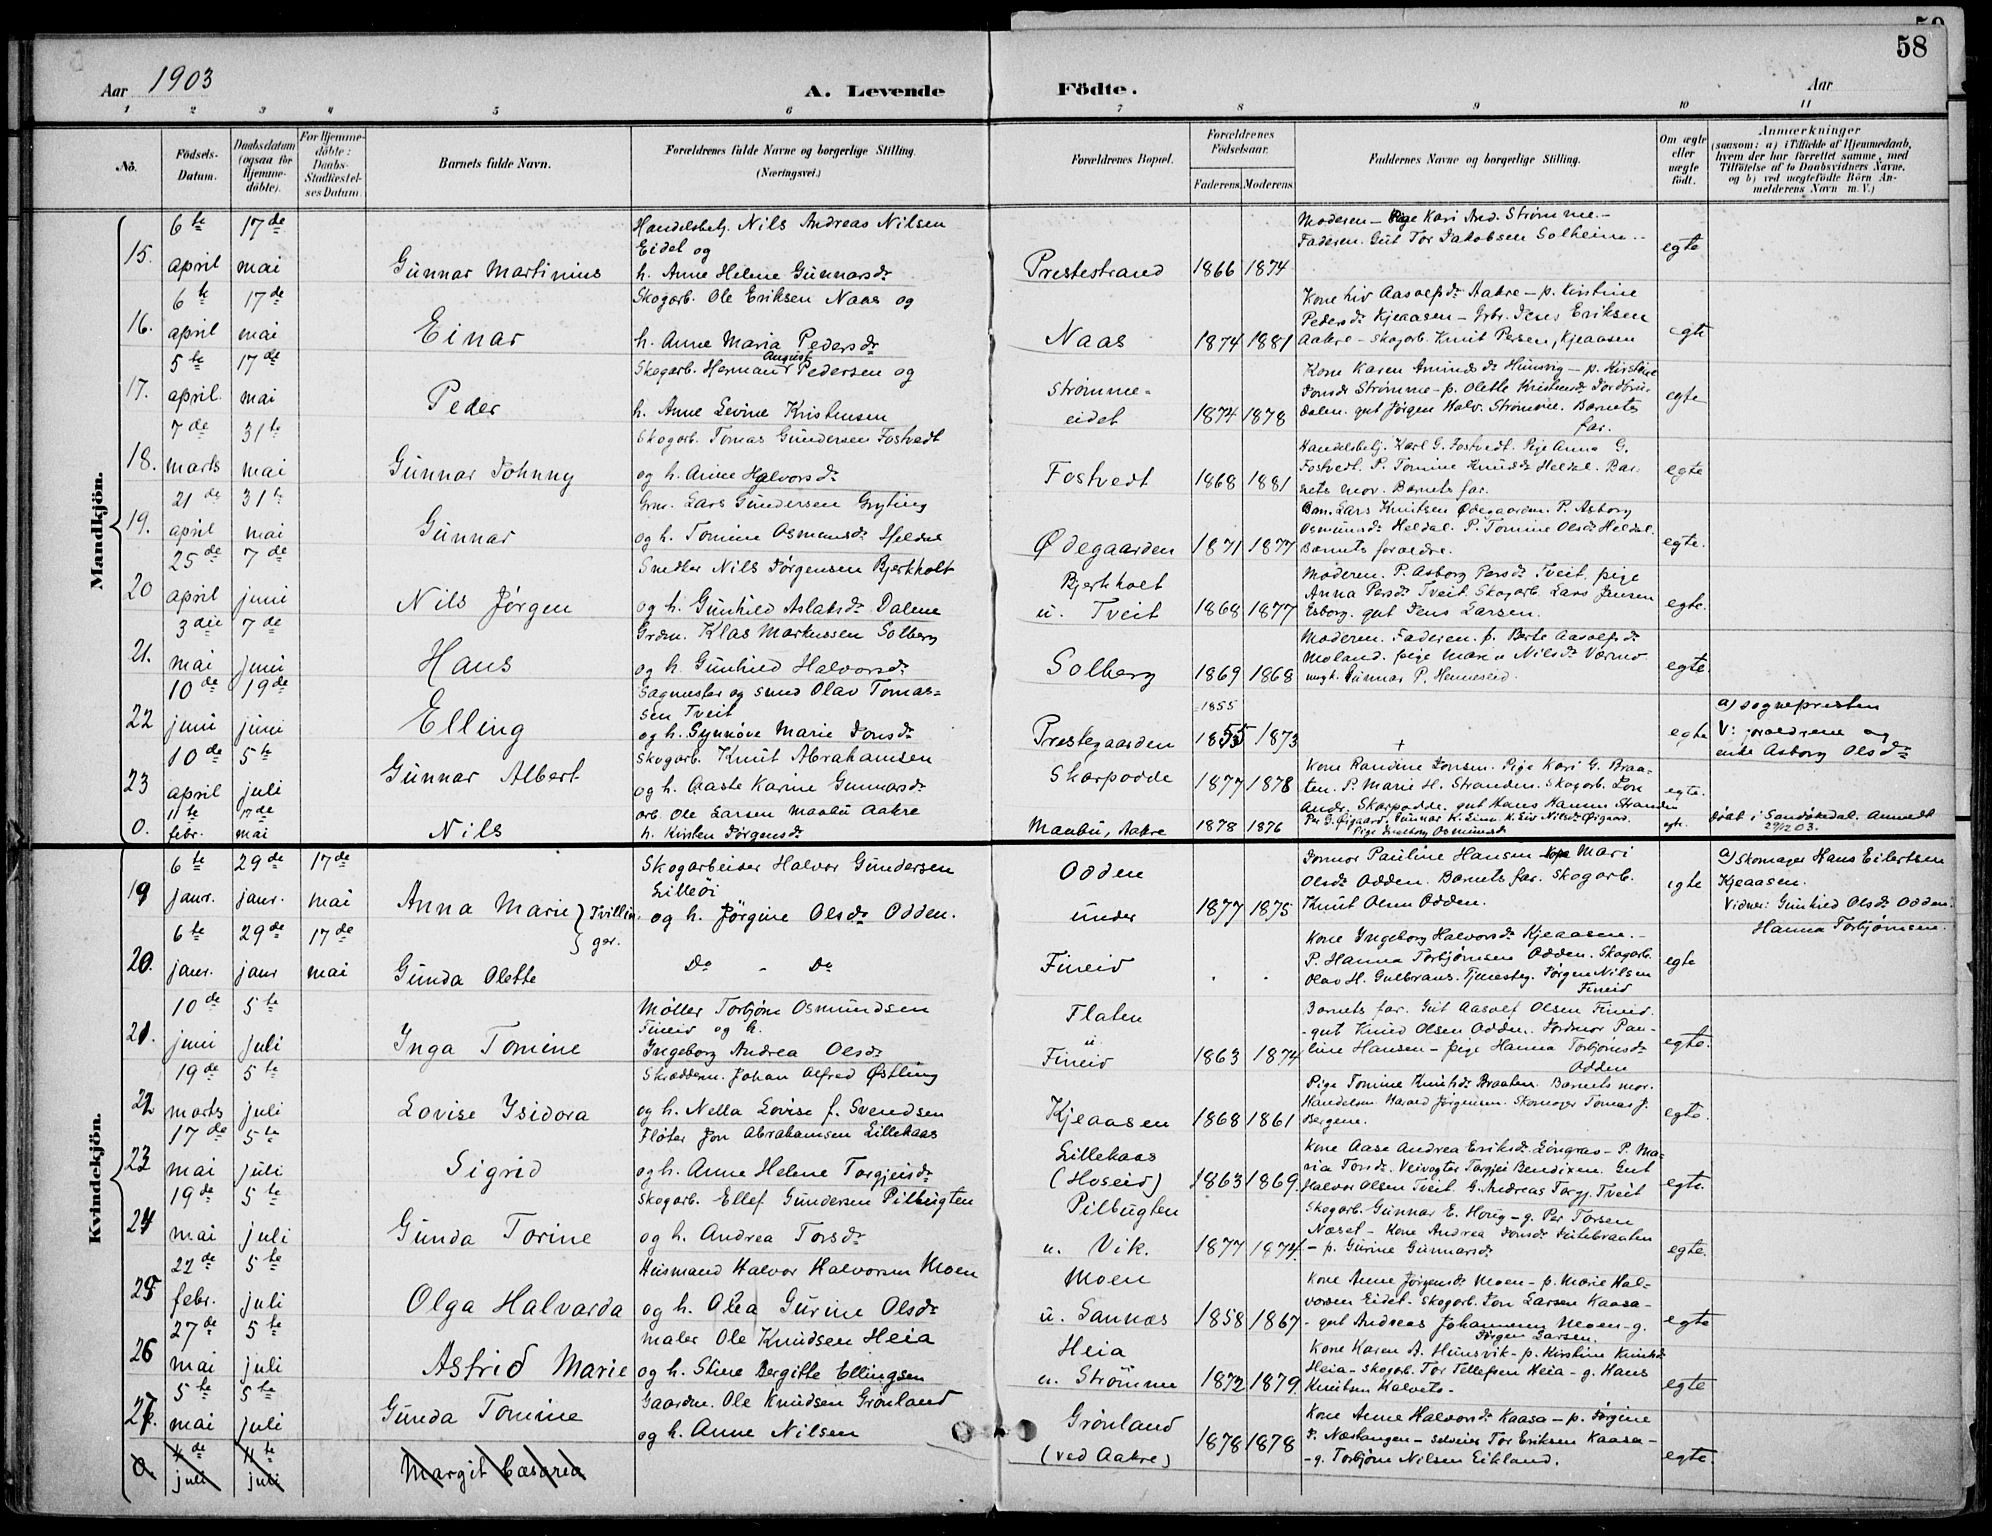 58
Aar 1903
A. Levende
Födte.
Aar
1 2 3 4 5 6 7 8 9 10 11
No.
Födsels-Datum.
Daabsdatum (ogsaa for Hjemme-döbte).
For Hjemme-döbte: Daabs-Stadfæstel-ses Datum.
Barnets fulde Navn.
Forældrenes fulde Navne og borgerlige Stilling. (Næringsvei.)
Forældrenes Bopæl.
Forældrenes Födselsaar.
Faderens. Moderens.
Faddernes Navne og borgerlige Stilling.
Om ægte eller uægte födt.
Anmærkninger
(saasom: a) i Tilfælde af Hjemmedaab, hvem der har forrettet samme, med Tilföielse af to Daabsvidners Navne, og b) ved uægtefödte Börn Anmelderens Navn m. V.)
Mandkjön.
15. 6te april 17de mai Gunnar Martinius
Handelsbetj. Nils Andreas Nilsen
Eidet og
h. Anne Helene Gunnarsdr
Prestestrand 1866 1874
Moderen - Pige Kari And. Strømme. -
Faderen. Gut Tor Jakobsen Solheim. -
egte
16. 6te april 17de mai Einar
Skogarb. Ole Eriksen Naas og
h. Anne Maria Pedersdr
Naas 1874 1881
Kone Liv Aasolfsdr Aakre - p. Kirstine
Pedersdr Kjeaasen - Grbr. Jens Eriksen
Aakre - Skogarb. Knut Persen, Kjeaasen
egte
17. 5te april 17de mai Peder
Skogarb. Herman August Pedersen og
h. Anne Levine Kristensen
Strømme-
eidet 1874 1878
Kone Karen Amundsdr Hunsvig - p. Kirstine
Jonsdr Strømme - p. Olette Kristensdr Jordbru-
dalen. gut Jørgen Halv. Strømme. Barnets
far.
egte
18. 7de marts 31te mai Gunnar Johnny
Skogarb. Tomas Gundersen Fostvedt
og h. Anne Halvorsdr
Fostvedt 1868 1881
Handelsbetj. Karl G. Fostvedt. Pige Anna G.
Fostvedt. P. Tomine Knudsdr Heldal. Bar-
nets mor. Barnets far.
egte
19. 21de april 31te mai Gunnar
Grm. Lars Gundersen Gryting
og h. Tomine Osmundsdr Heldal
Ødegaarden 1871 1877
Lars Knutsen Ødegaarden. P. Asborg
Osmundsdr Heldal. P. Tomine Olsdr Heldal.
Barnets forældre.
egte.
20 25de april 7de juni Nils Jørgen
Snedker Nils Jørgensen Bjerkholt
og h. Gunhild Aslaksdr Dalene
Bjerkholt
u. Tveit 1868 1877
Moderen. P. Asborg Persdr Tveit, pige
Anna Persdr Tveit. Skogarb. Lars Jensen
Esborg. gut Jens Larsen.
egte.
21. 3die mai 7de juni Hans
Grdm. Klas Markussen Solberg
og h. Gunhild Halvorsdr
Solberg 1869 1868
Moderen. Faderen. p. Berte Aasolfsdr
Moland. pige Maria Nilsdr Værmo
ungk. Gunnar P. Henneseid.
egte.
22 10de juni 19de juni Elling
Sagmester og smed Olav Tomas-
sen Tveit
og h. Synnøve Marie Jonsdr
Prestegaarden 1855 1873
1855
+
egte
a) sognepresten
V: forældrene og
enke Asborg Olsdr
23 10de april 5te juli Gunnar Albert
Skogarb. Knut Abrahamsen
og h. Aaste Karine Gunnarsdr
Skarpodde 1877 1878
Kone Randine Jonsen. Pige Kari G. Braa-
ten. P. Marie H. Stranden. Skogarb. Jon
Andr. Skarpodde. gut Hans Hansen Stranden
egte.
0. 11te febr. 17de mai Nils
arb. Ole Larsen Maabu Aakre
h. Kirsten Jørgensdr
Maabu, Aakre 1878 1876
egte.
døbt i Sandøkedal. Anmeldt
29/12 03.
Kvindekjön.
19 6te janr. 29de janr. 17de mai Anna Marie } Tvillin-
ger.
Skogarbeider Halvor Gundersen
Lilleøi
og h. Jørgine Olsdr Odden.
Odden
under 1877 1875
Jonmor Pauline Hansen - Kone Mari
Olsdr Odden. Barnets far. Skogarb.
Knut Olsen Odden.
egte
a) Skomager Hans Eilertsen
Kjeaasen.
Vidner: Gunhild Olsdr Odden.
Hanna Torbjørnsen.
20. 6te janr. 29de janr 17de mai Gunda Olette
Do - Do
Fineid
Kone Ingeborg Halvorsdr Kjeaasen. -
P. Hanna Torbjørnsen Odden. Skogarb.
Olav H. Gulbrans. Tjenestg. Jørgen Nilsen
Fineid
egte
21. 10de juni 5te juli Inga Tomine
Møller Torbjørn Osmundsen
Fineid og h.
Ingeborg Andrea Olsdr
Flaten
u
Fineid 1863 1874
Barnets far. Gut Aasolf Olsen Fineid.
- gut Knud Olsen Odden. Jordmor Pau-
line Hansen - pige Hanna Torbjørnsdr
Odden
egte.
22 19de marts 5te juli Lovise Isidora
Skrædderm. Johan Alfred Østling
og h. Nella Lovise f. Svendsen
Kjeaasen 1868 1861
Pige Tomine Knutsdr Braaten. Barnets mor.
Handelsm. Harald Jørgensen. Skomager Tomas J.
Bergene.
egte.
23 17de mai 5te juli Sigrid
Fløter Jon Abrahamsen Lillekaas
og h. Anne Helene Torgjeisdr
Lillekaas
(Hoseid) 1863 1869
Kone Aase Andrea Eriksdr Longras - P. Ma-
ria Torsdr. Veivogter Torgjei Bendixen. Gut
Halvor Olsen Tveit. G. Andreas Torgj. Tveit
egte.
24 19de mai 5te juli Gunda Torine
Skogarb. Ellef Gundersen Pilbugten
og h. Andrea Torsdr
Pilbugten
u. Vik. 1877 1874.
Skogarb. Gunnar E. Houg - g. Per Torsen
Næset - Kone Andrea Jonsdr Futebraaten
- p. Gurine Gunnarsdr
egte.
25 22de febr. 5te juli Olga Halvarda
Husmand Halvor Halvorsen Moen
og h. Olea Gurine Olsdr
Moen
u. Sannæs 1858 1867
Kone Anne Jørgensdr Moen - p. Marie Hal-
vorsen Eidet - Skogarb. Jon Larsen Kaasa -
- gut Andreas Johannsen Moen - g.
Jørgen Larsen.
egte
26 27de mai 5te juli Astrid Marie
Maler Ole Knudsen Heia
og h. Stine Bergitte Ellingsen
Heia
u. Strømme 1872 1879.
Kone Karen A. Hunsvik - p. Kirstine Knutsdr
Heia - skogarb. Tor Tellefsen Heia - g. Hans
Knutsen Halvets -
egte
27. 5te mai 5te juli Gunda Tomine
Gaardm. Ole Knudsen Grønland
og h. Anne Nilsen
Grønland
(ved Aakre) 1878 1878
Kone Anne Halvorsdr Kaasa - p. Jørgine
P. Næstangen - selveier Tor Eriksen Kaasa -
- g. Torbjørn Nilsen Eikland.
egte.
0. 4de juli 11te juli Margit Cæsarea